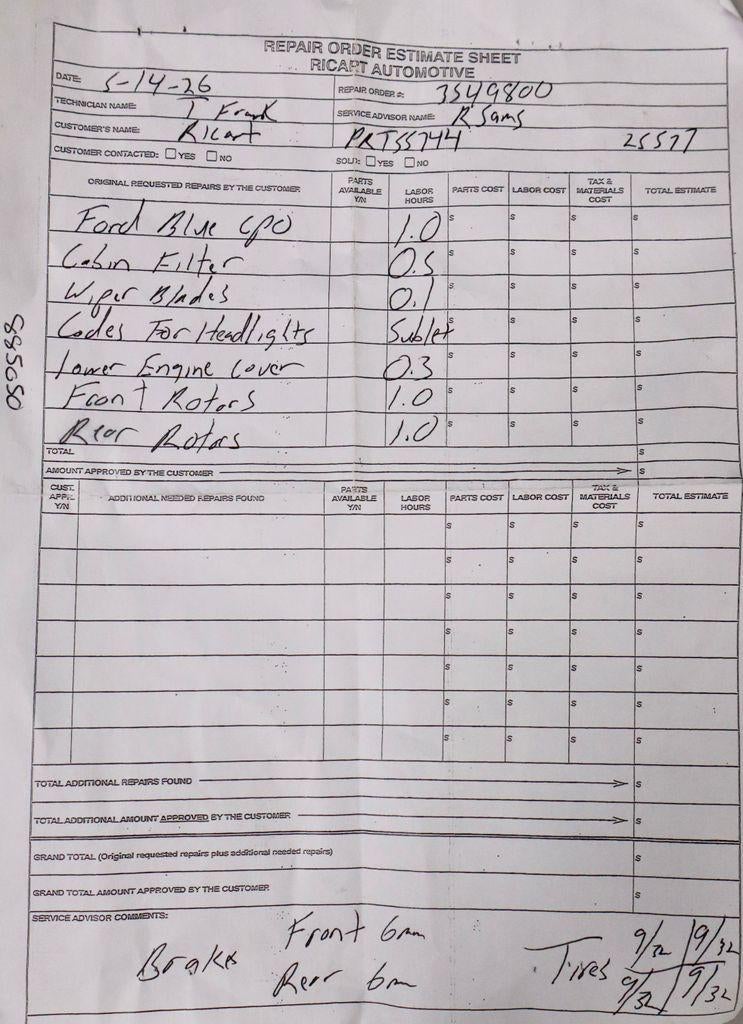 REPAIR ORDER ESTIMATE SHEET
RICART AUTOMOTIVE
DATE: 5-14-26 REPAIR ORDER #: 3549800
TECHNICIAN NAME: T Frank SERVICE ADVISOR NAME: R Sams
CUSTOMER'S NAME: Ricart PRTS5744 25577
CUSTOMER CONTACTED: ☐ YES ☐ NO SOLD: ☐ YES ☐ NO
ORIGINAL REQUESTED REPAIRS BY THE CUSTOMER PARTS AVAILABLE Y/N LABOR HOURS PARTS COST LABOR COST TAX & MATERIALS COST TOTAL ESTIMATE
Ford Blue CPO 1.0 $ $ $ $
Cabin Filter 0.5 $ $ $ $
Wiper Blades 0.1 $ $ $ $
Codes For Headlights Sublet $ $ $ $
Lower Engine Cover 0.3 $ $ $ $
Front Rotors 1.0 $ $ $ $
Rear Rotors 1.0 $ $ $ $
TOTAL $
AMOUNT APPROVED BY THE CUSTOMER $
CUST. APPR. Y/N ADDITIONAL NEEDED REPAIRS FOUND PARTS AVAILABLE Y/N LABOR HOURS PARTS COST LABOR COST TAX & MATERIALS COST TOTAL ESTIMATE
$ $ $ $
$ $ $ $
$ $ $ $
$ $ $ $
$ $ $ $
$ $ $ $
$ $ $ $
TOTAL ADDITIONAL REPAIRS FOUND $
TOTAL ADDITIONAL AMOUNT APPROVED BY THE CUSTOMER $
GRAND TOTAL (Original requested repairs plus additional needed repairs) $
GRAND TOTAL AMOUNT APPROVED BY THE CUSTOMER $
SERVICE ADVISOR COMMENTS:
Brakes Front 6mm Rear 6mm
Tires 9/32 9/32
9/32 9/32